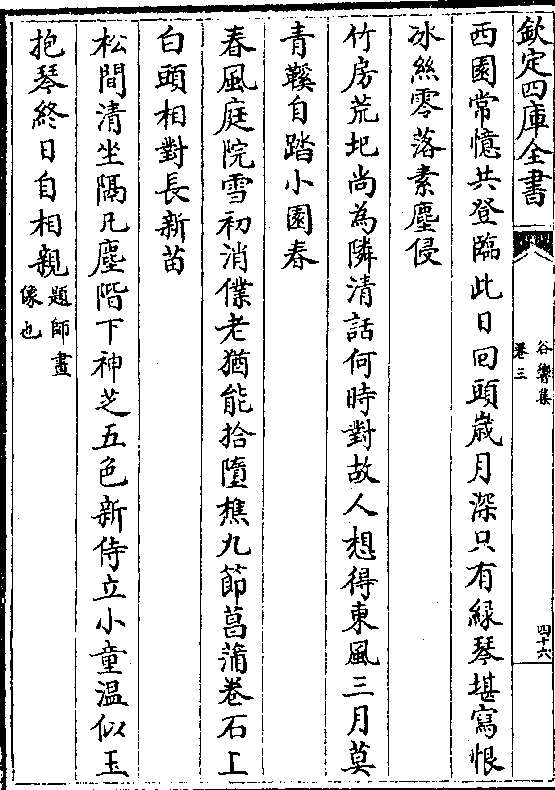 欽定四庫全書
谷響集
卷三
四十六
西園常憶共登臨此日回頭歲月深只有綠琴堪寫恨
冰絲零落素塵侵
竹房荒圮尚為隣清話何時對故人想得東風三月莫
青鞵自踏小園春
春風庭院雪初消僕老猶能拾墮樵九節菖蒲卷石上
白頭相對長新苗
松間清坐隔凡塵階下神芝五色新侍立小童温似玉
抱琴終日自相親題師畫
像也